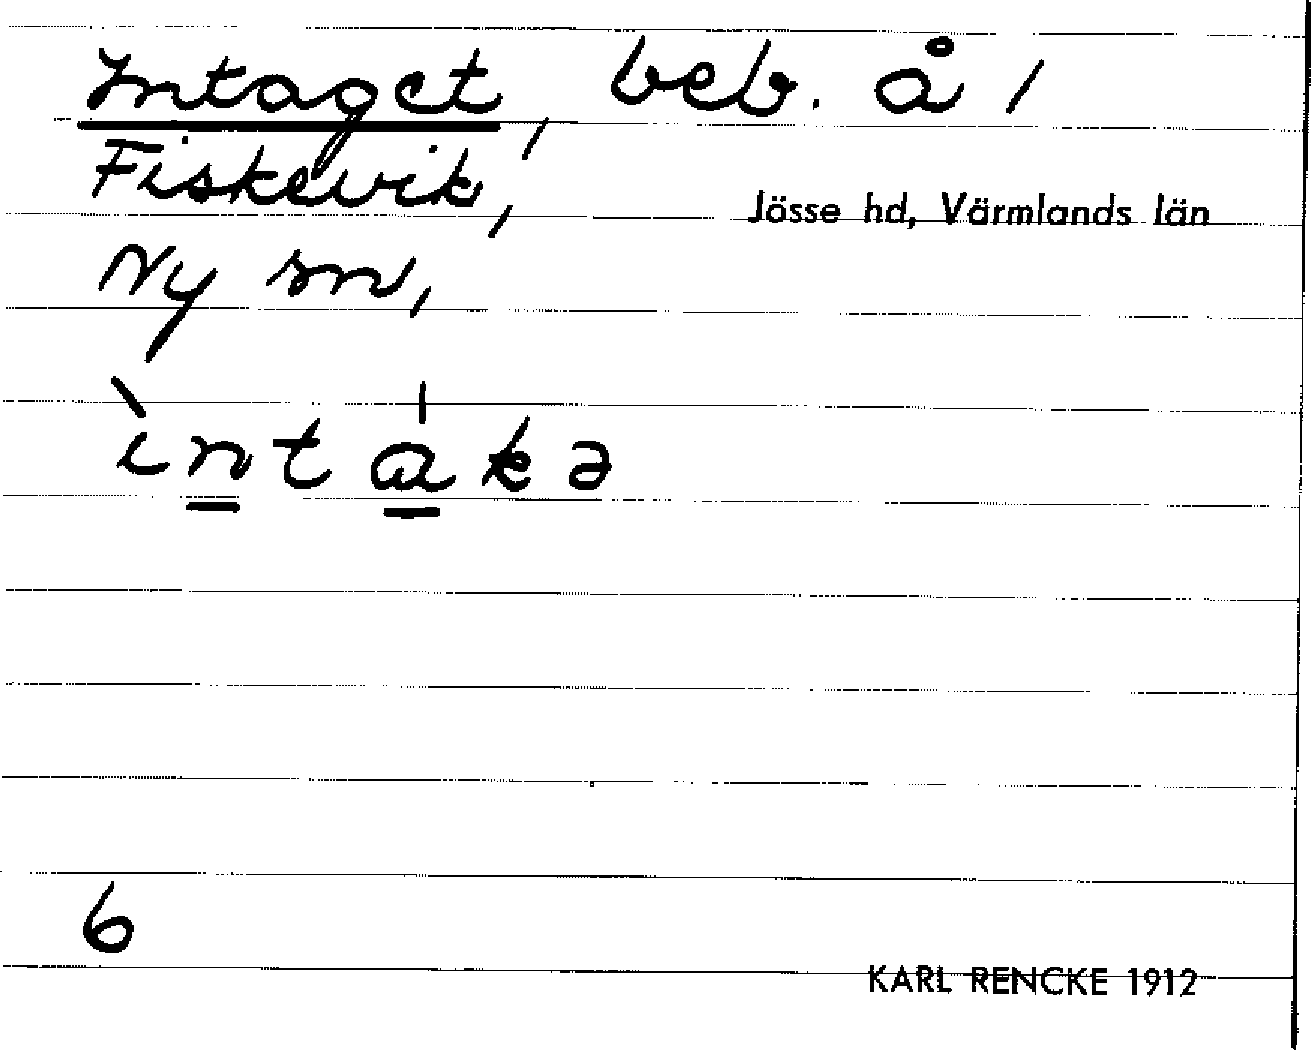 Intaget, beb. å 1
Fiskevik,
Jösse hd, Värmlands län
Ny sn,
ìntákə
6
KARL RENCKE 1912